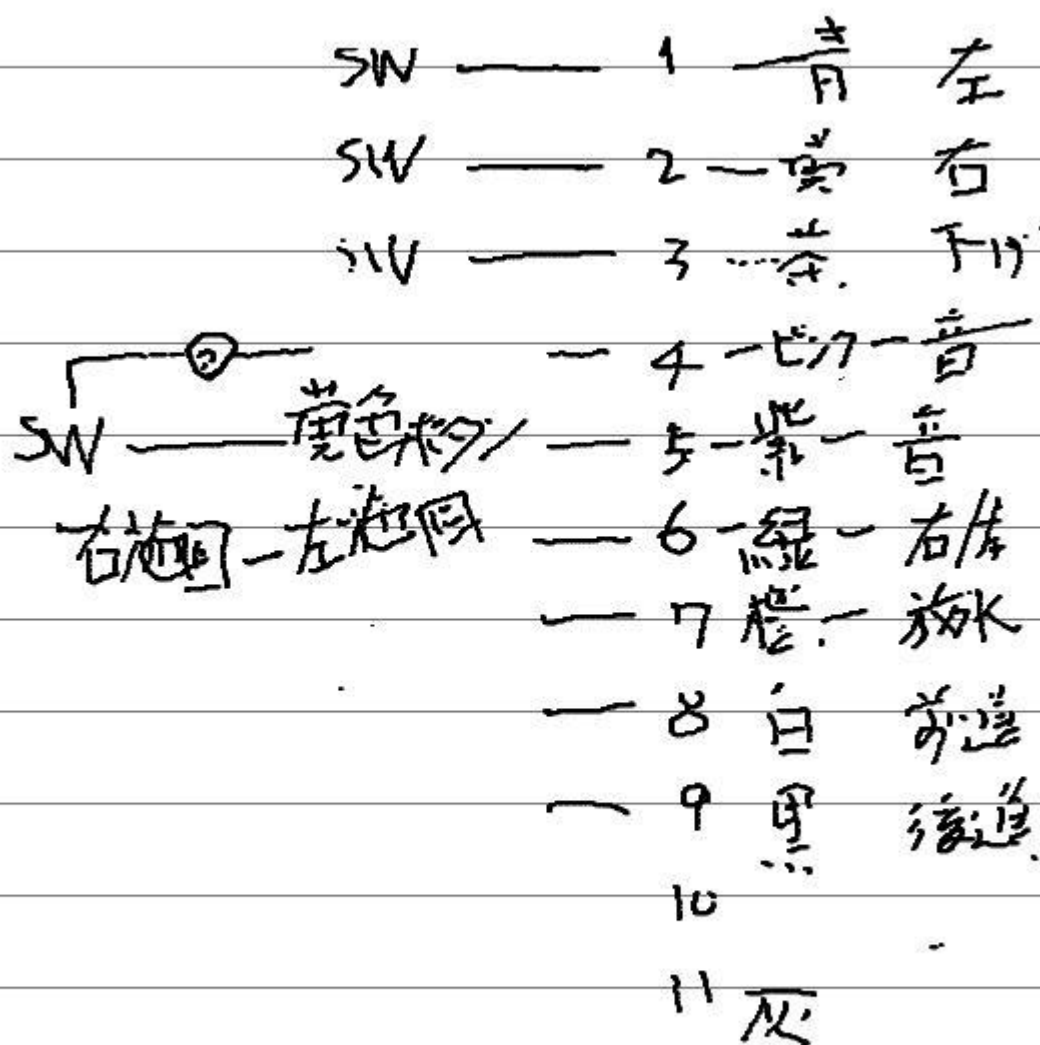 SW — 1 — 青 左
SW — 2 — 黄 右
SW — 3 … 茶. 下げ
— 4 — ピンク — 音
SW — 黄色ボタン — 5 — 紫 — 音
右旋回 — 左旋回 — 6 — 緑 — 右/左
— 7 橙. — 放水
— 8 白 前進
— 9 黒 後進.
10
11 灰